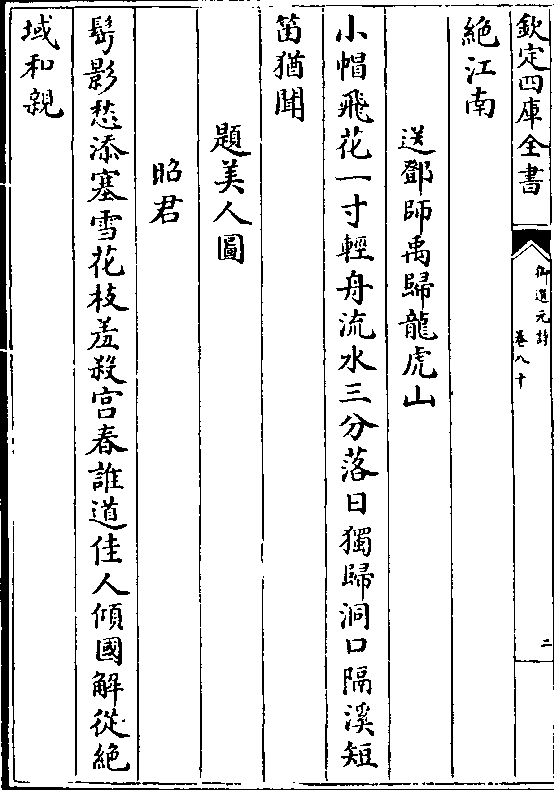 欽定四庫全書
御選元詩
卷八十
二
絶江南
送鄧師禹歸龍虎山
小帽飛花一寸輕舟流水三分落日獨歸洞口隔溪短
笛猶聞
題美人圖
昭君
髩影愁添塞雪花枝羞殺宫春誰道佳人傾國解從絶
域和親